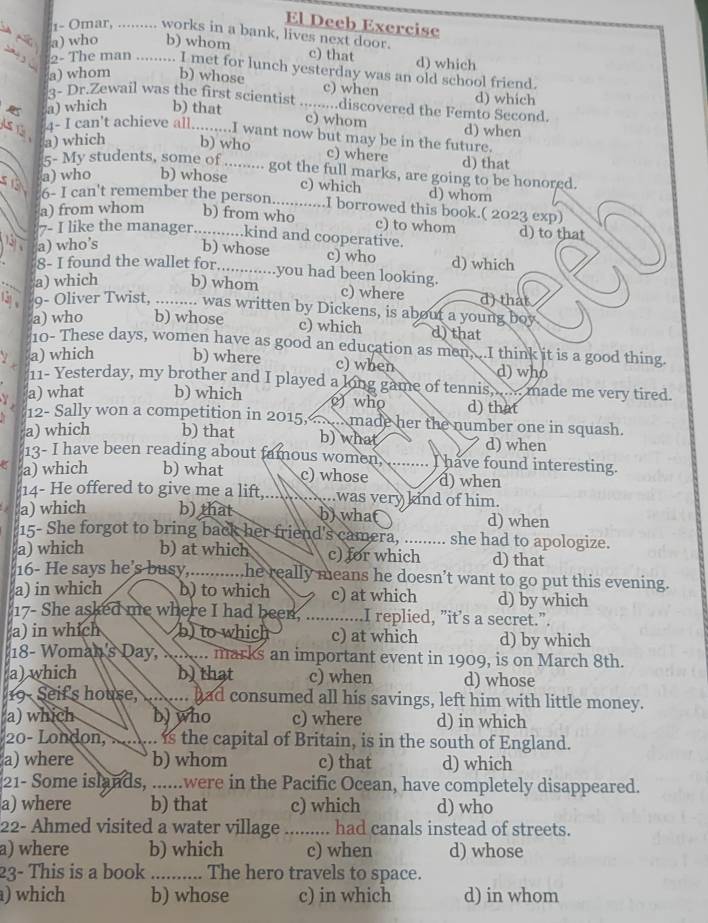 El Deeb Exercise
1- Omar, ......... works in a bank, lives next door.
a) who b) whom c) that d) which
2- The man ......... I met for lunch yesterday was an old school friend.
a) whom b) whose c) when d) which
3- Dr.Zewail was the first scientist .........discovered the Femto Second.
a) which b) that c) whom d) when
4- I can't achieve all.........I want now but may be in the future.
a) which b) who c) where d) that
5- My students, some of ......... got the full marks, are going to be honored.
a) who b) whose c) which d) whom
6- I can't remember the person............I borrowed this book.( 2023 exp)
a) from whom b) from who c) to whom d) to that
7- I like the manager...........kind and cooperative.
a) who's b) whose c) who d) which
8- I found the wallet for.............you had been looking.
a) which b) whom c) where d) that
9- Oliver Twist, ......... was written by Dickens, is about a young boy.
a) who b) whose c) which d) that
10- These days, women have as good an education as men,...I think it is a good thing.
a) which b) where c) when d) who
11- Yesterday, my brother and I played a long game of tennis,...... made me very tired.
a) what b) which c) who d) that
12- Sally won a competition in 2015, .......made her the number one in squash.
a) which b) that b) what d) when
13- I have been reading about famous women, ......... I have found interesting.
a) which b) what c) whose d) when
14- He offered to give me a lift,................was very kind of him.
a) which b) that b) what d) when
15- She forgot to bring back her friend's camera, ......... she had to apologize.
a) which b) at which c) for which d) that
16- He says he's busy,...........he really means he doesn't want to go put this evening.
a) in which b) to which c) at which d) by which
17- She asked me where I had been, ............I replied, "it's a secret.".
a) in which b) to which c) at which d) by which
18- Woman's Day, ......... marks an important event in 1909, is on March 8th.
a) which b) that c) when d) whose
19- Seif's house, ......... had consumed all his savings, left him with little money.
a) which b) who c) where d) in which
20- London, ......... is the capital of Britain, is in the south of England.
a) where b) whom c) that d) which
21- Some islands, ......were in the Pacific Ocean, have completely disappeared.
a) where b) that c) which d) who
22- Ahmed visited a water village ......... had canals instead of streets.
a) where b) which c) when d) whose
23- This is a book .......... The hero travels to space.
a) which b) whose c) in which d) in whom
MR M El Deeb